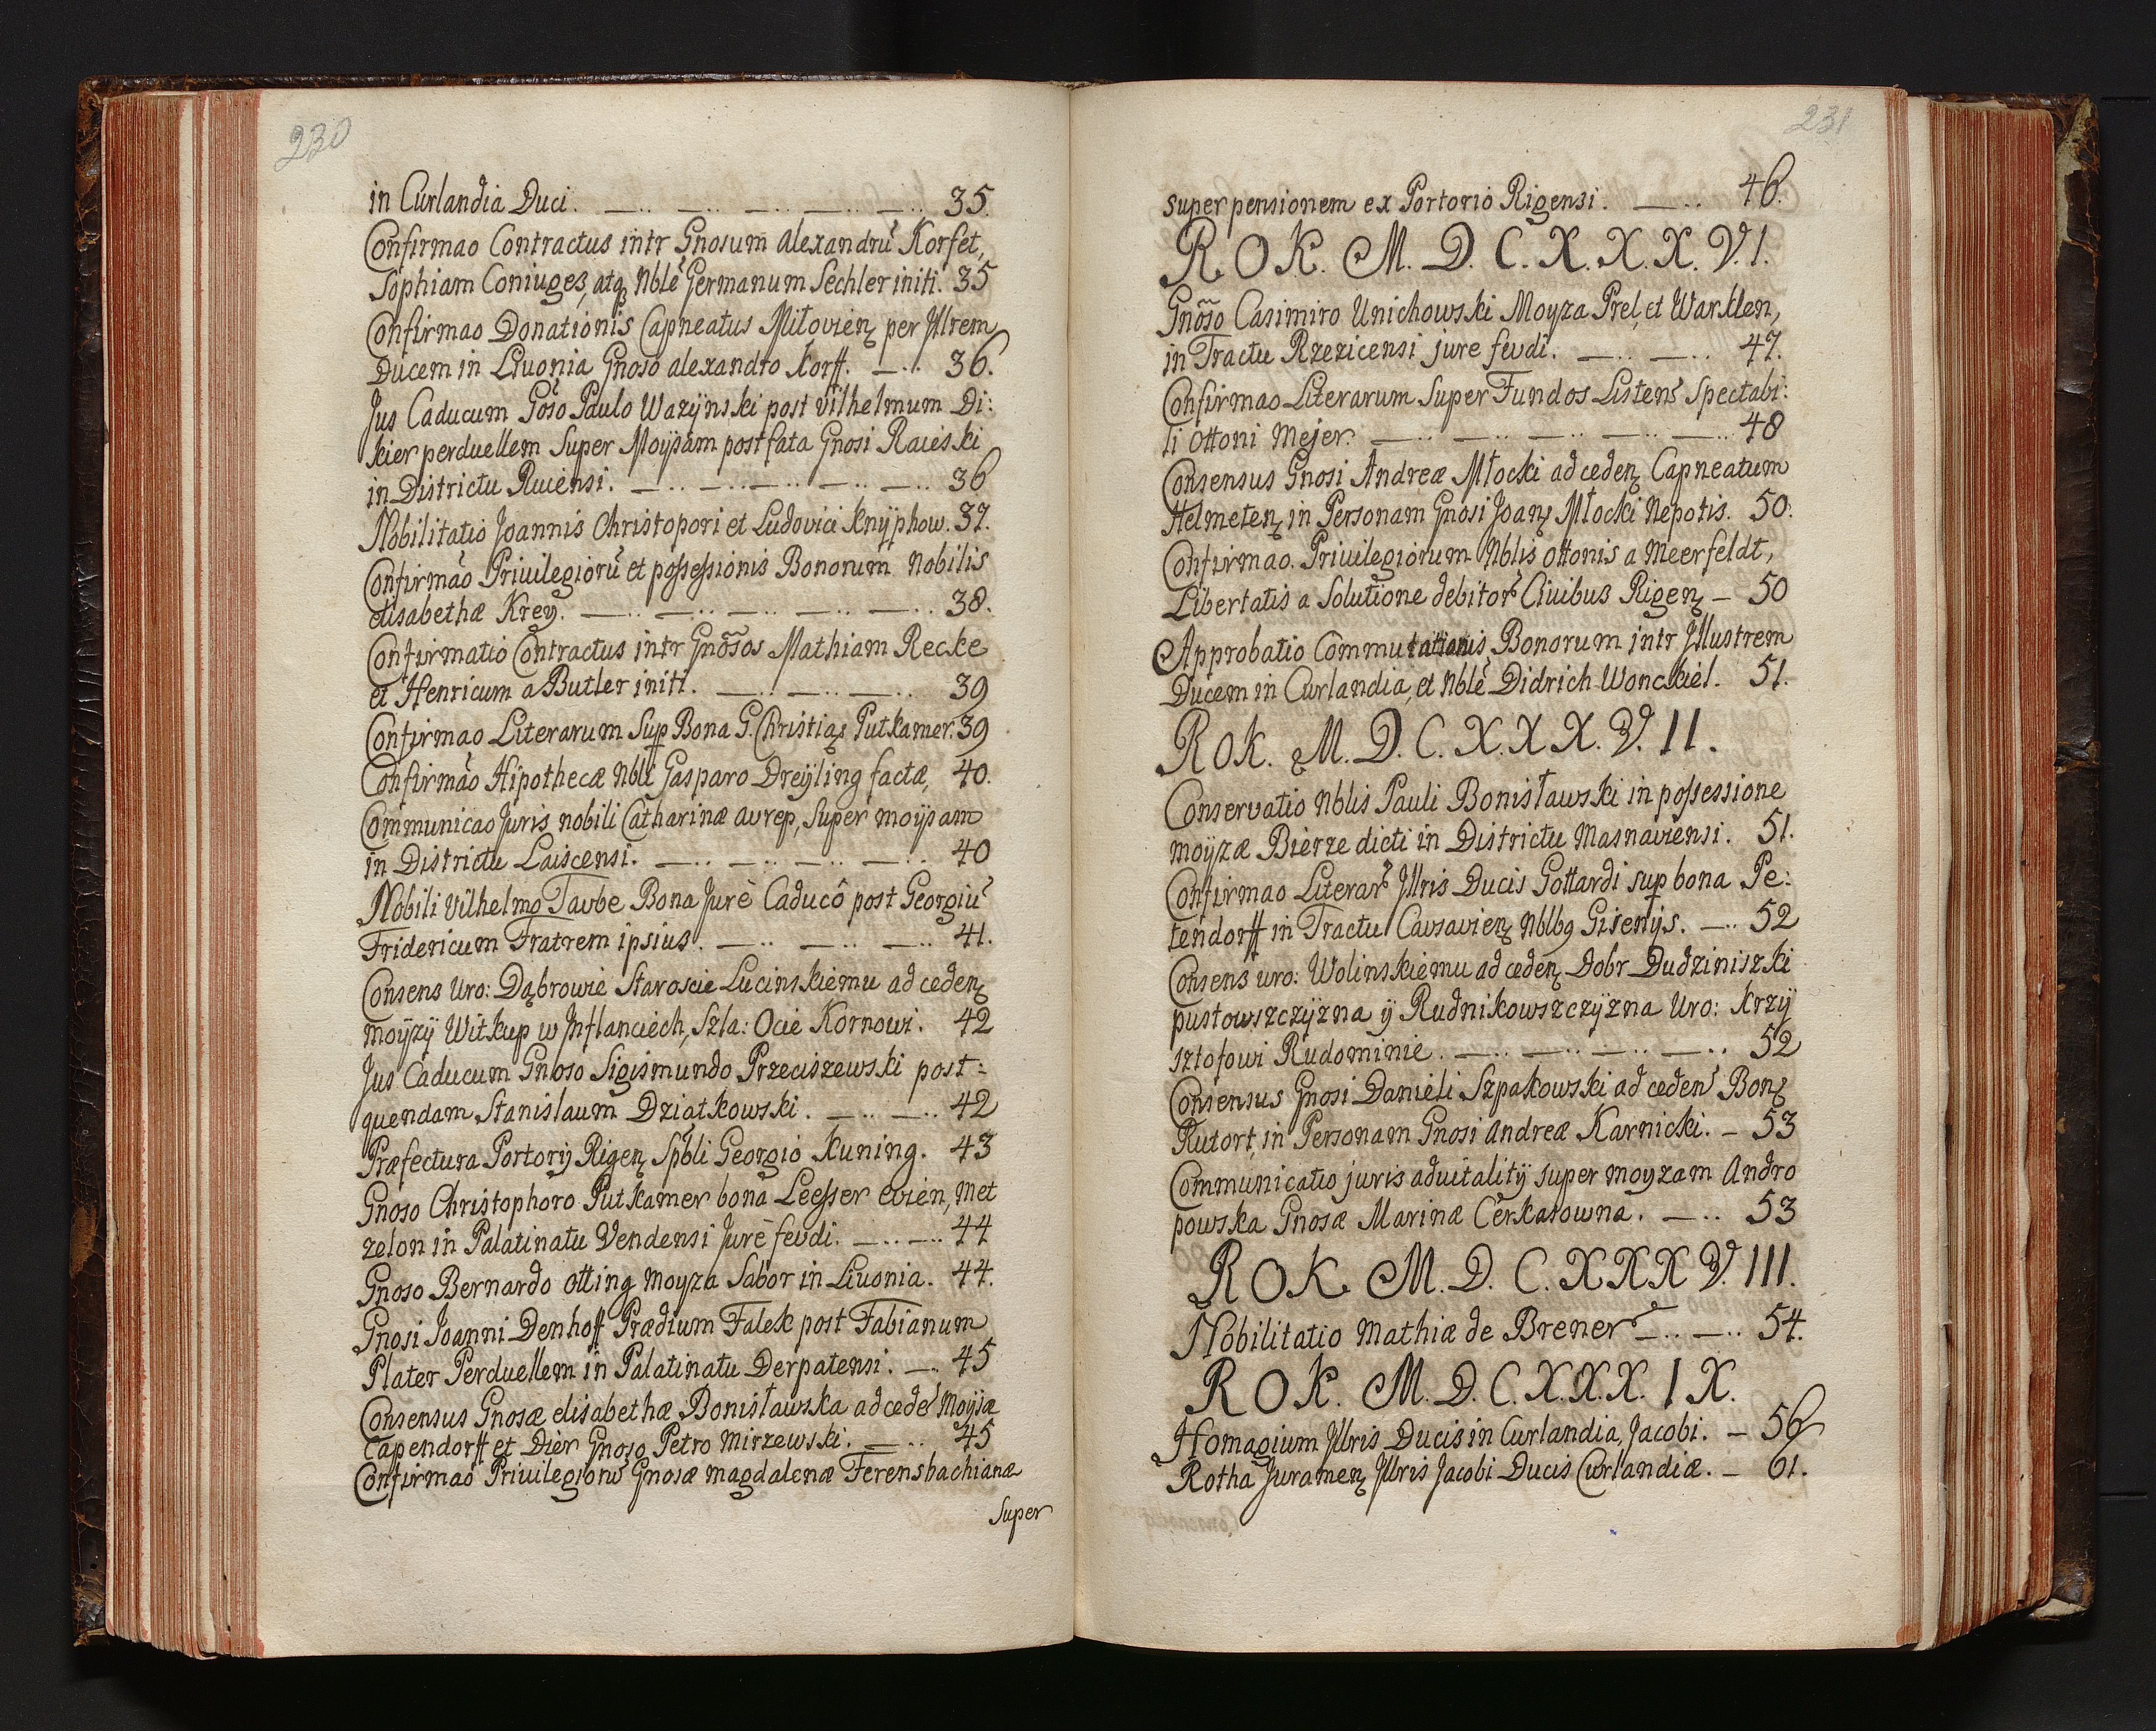 230
in Curlandia Duci. —.. —.. —.. —.. —.. 35.
Confirmao Contractus intr Gnosum Alexandrũ Korfet,
Sophiam Coniuges, atq; Nblẽ Germanum Sechler initi. 35
Confirmao Donationis Capneatus Miłovienz per Jllrem
Ducem in Livonia Gnoso alexandro Korff. —.. 36.
Jus Caducum Goso Paulo Wazÿnski post Vilhelmum Di:
kier perduellem Super Moÿsam post fata Gnosi Raieski
in Districtu Ruiensi. —.. —.. —.. —.. —.. 36
Nobilitatio Joannis Christopori et Ludovici Knÿphow. 37.
Confirmão Priuilegiorũ et possessionis Bonorum Nobilis
elisabethæ Kreÿ. —.. —.. —.. —.. —.. 38.
Confirmatio Contractus intr Gnõsos Mathiam Recke
et Henricum a Butler initi. —.. —.. —.. 39
Confirmao Literarum Sup Bona G. Christiaz Putkamer. 39
Confirmão Hipothecæ Nbli Gasparo Dreÿling factæ, 40.
Communicao Juris nobili Catharinæ avrep, Super moÿsam
in Districtu Laiscensi. —.. —.. —.. —.. 40
Nobili Vilhelmo Tavbe Bona Jurê Caducô post Georgiũ
Fridericum Fratrem ipsius. —.. —.. —.. 41.
Consens Uro: Dąbrowie Staroscie Lucinskiemu ad cedenz
moÿzÿ Witkup w Jnflanciech, Szla: Ocie Kornowi. 42
Jus Caducum Gnoso Sigismundo Przeciszewski post:
quendam Stanislaum Dziatkowski. —.. —.. 42
Præfectura Portorÿ Rigenz Spbli Georgio Kuning. 43
Gnoso Christophoro Putkamer bona Leesser evien, Met
zelon in Palatinatu Vendensi Jurê feudi. —.. —.. 44
Gnoso Bernardo otting Moyza Sabor in Livonia. 44.
Gnosi Joanni Denhoff Prædium Falek post Fabianum
Plater Perduellem in Palatinatu Derpatensi. —.. 45
Consensus Gnosæ elisabethæ Bonisławska ad cedẽ Moÿsæ
Capendorff et Dier Gnoso Petro Mirzewski. —.. 45
Confirmaõ Priuilegionũ Gnosæ magdalenæ Ferensbachianæ
Super
231
super pensionem ex Portorio Rigensi. —.. 46.
ROK. M. D. C. X. X. X. V. I.
Gnõso Casimiro Unichowski Moyza Prel, et Warklen,
in Tractu Rzezicensi jure feudi. —.. —.. 47.
Confirmao Literarum Super Fundos Listens Spectabi:
li ottoni Mejer. —.. —.. —.. —.. —.. 48
Consensus Gnosi Andreæ Młocki ad cedenz Capneatum
Helmetenz in Personam Gnosi Joanz Młocki Nepotis. 50.
Confirmao. Priuilegiorum Nblis ottonis a Meerfeldt,
Libertatis a Solutione debitor Ciuibus Rigenz — 50
Approbatio Commutationis Bonorum intr Jllustrem
Ducem in Curlandia, et Nblẽ Didrich Wonckiel. 51.
ROK. M. D. C. X. X. X. V. II.
Conservatio Nblis Pauli Bonisławski in possessione
moÿzæ Bierze dicti in Districtu Masnaviensi. 51.
Confirmao Literar Jllris Ducis Gottardi sup bona Pe:
tendorff in Tractu Cavsavienz Nblbq Gisenÿs. —.. 52
Consens uro: Wolinskiemu ad cedenz Dobr Dudziniszki
pustowszczÿzna ÿ Rudnikowszczÿzna Uro: Krzÿ
sztofowi Rudominie. —.. —.. —.. —.. 52
Consensus Gnosi Danieli Szpakowski ad ceden Bonz
Rutort, in Personam Gnosi Andreæ Karnicki. — 53
Communicatio juris aduitalitÿ super moyzam Andro
powska Gnosæ Marinæ Cerkasowna. —.. 53
ROK M. D. C. XXX V. III.
Nobilitatio Mathiæ de Brener —.. —.. 54.
ROK. M. D. C. X. X. X. I X.
Homagium Jllris Ducis in Curlandia, Jacobi. — 56
Rotha Juramenz Jllris Jacobi Ducis Curlandiæ. — 61.